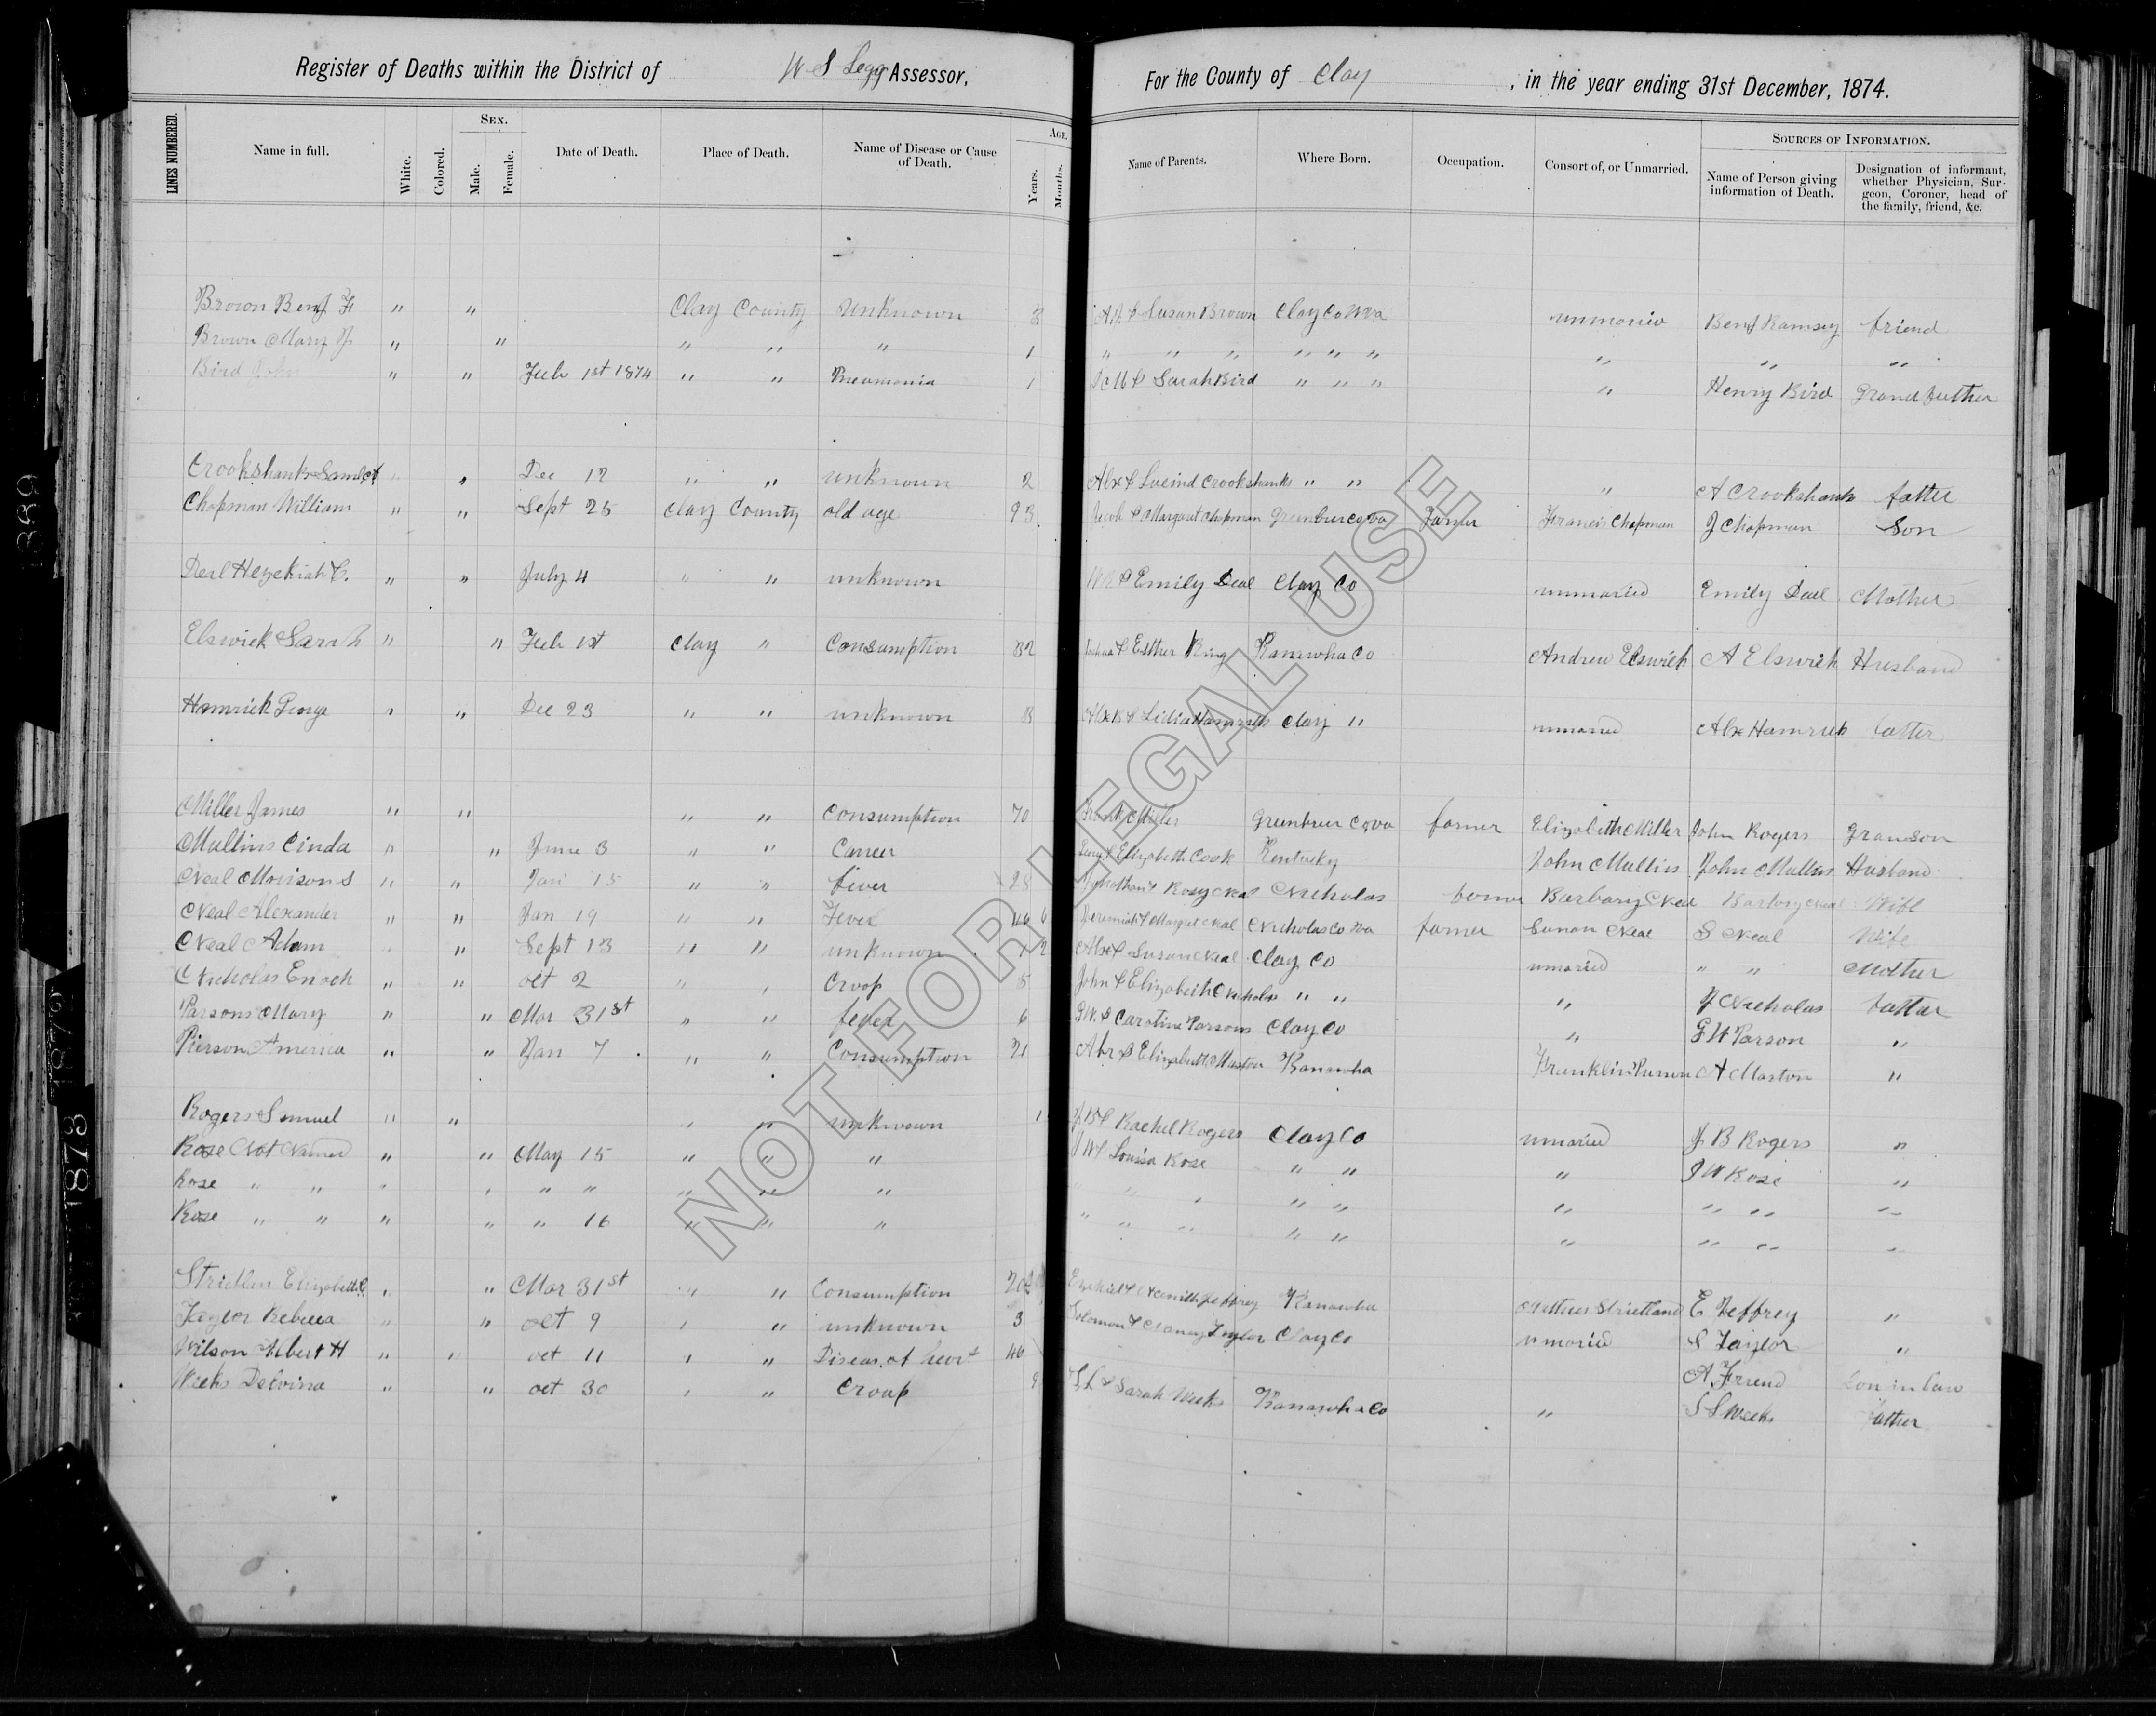 Register of Deaths within the District of W S Legg Assessor, For the County of Clay, in the year ending 31st December, 1874.
LINES NUMBERED. Name in full. White. Colored. SEX. Male. Female. Date of Death. Place of Death. Name of Disease or Cause of Death. AGE. Years. Months. Name of Parents. Where Born. Occupation. Consort of, or Unmarried. SOURCES OF INFORMATION. Name of Person giving information of Death. Designation of informant, whether Physician, Surgeon, Coroner, head of the family, friend, &c.
Brown Benj F " " Clay County Unknown 3 & Susan Brown Clay Co Wva unmarid Benj Ramsey friend
Brown Mary J " " " " " 1 " " " " " " " " "
Bird John " " Feb 1st 1874 " " Pneumonia 1 & Sarah Bird " " " " Henry Bird Grand father
Crookshanks " Dec 12 " " unknown 2 Alex & Lucind Crookshanks " " " A Crookshank father
Chapman William " " Sept 25 Clay County old age 93 Jacob & Margaret Chapman Greenbrier co va Farmer Francis Chapman J Chapman Son
Deal Hezekiah C. " " July 4 " " unknown & Emily Deal Clay Co unmaried Emily Deal Mother
Elswick Sarah " " Feb 1st Clay " Consumption 82 & Esther King Kanawha Co Andrew Elswick A Elswick Husband
Hamrick George " " Dec 23 " " unknown 8 & Lidia Hamrick Clay " unmaried Alx Hamrick father
Miller James " " " " Consumption 70 Frank Miller Greenbrier Co va farmer Elizabeth Miller John Rogers Granson
Mullins Cinda " " June 3 " " Cancer & Elizabeth Cook Kentucky John Mullins John Mullins Husband
Neal Morison S " " Jan 15 " " fiver 28 & Rosey Neal Nicholas farmer Barbary Neal Barbary Neal Wife
Neal Alexander " " Jan 19 " " Fever 46 6 Jeremiah & Margret Neal Nicholas Co Wva farmer Susan Neal S Neal Wife
Neal Adam " " Sept 13 " " unknown 2 Alex & Susan Neal Clay Co unmaried " " Mother
Nicholas Enoch " " oct 2 " , Croop 5 John & Elizabeth Nicholas " " " J Nicholas father
Parsons Mary " " Mar 31st " " fever 6 G.W. & Caroline Parsons Clay Co " G W Parson "
Pierson America " " Jan 7 " " Consumption 21 Abr & Elizabeth Maston Kanawha Franklin Pierson A Maston "
Rogers Samuel " " , " unknown 1 J B & Rachel Rogers Clay Co unmaried J B Rogers "
Rose Not Named " " May 15 " " " J W & Louisa Rose " " " J W Rose "
Rose " " " , " " " " " " " , " " " " " "
Rose " " " " " 16 " " " " " " " " " " " "
Elizabeth , " Mar 31st " " Consumption 20 Ezekiel & Jeffrey Kanawha E Jeffrey "
Taylor Rebecca " " oct 9 , " unknown 3 Solomon & Nancy Taylor Clay Co unmaried S Taylor "
Wilson Albert H " " oct 11 , " Diseas of heart 46 A Friend Son in law
Weeks Delvina " " oct 30 , " Croup 9 & Sarah Weeks Kanawha Co " S S Weeks father
NOT FOR LEGAL USE
1889
1878